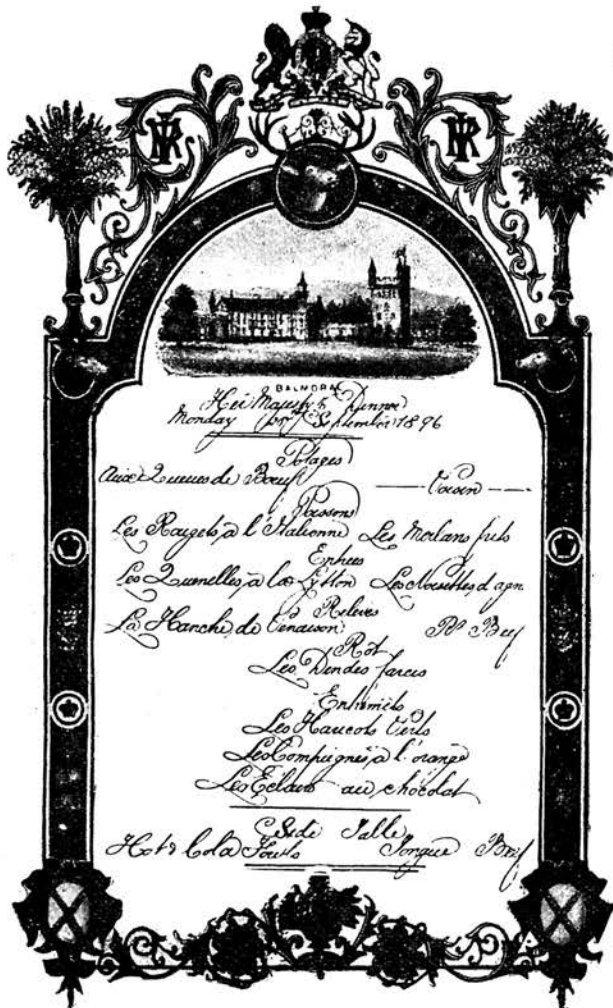 BALMORAL
Her Majesty's Dinner
Monday September 1896
Potages
Aux Queues de Boeuf —— ——
Poissons
Les Rougets à l'Italienne Les Merlans frits
Entrées
Les Quenelles à la Lytton Les Noisettes d'agn
Relevés
La Hanche de Venaison Rt Beef
Rôt
Les Dindes farcies
Entremêts
Les Haricots Verts
Les Compiegnes à l'orange
Les Eclairs au chocolat
Side Table
Hot & Cold Fowls Tongue Beef